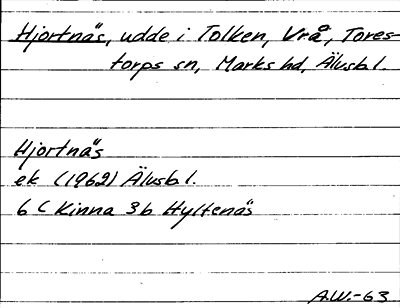 Hjortnäs, udde i Tolken, Vrå, Tores-
torps sn, Marks hd, Älvsbl.
Hjortnäs
ek (1962) Älvsbl.
6 C Kinna 3b Hyltenäs
A.W.-63